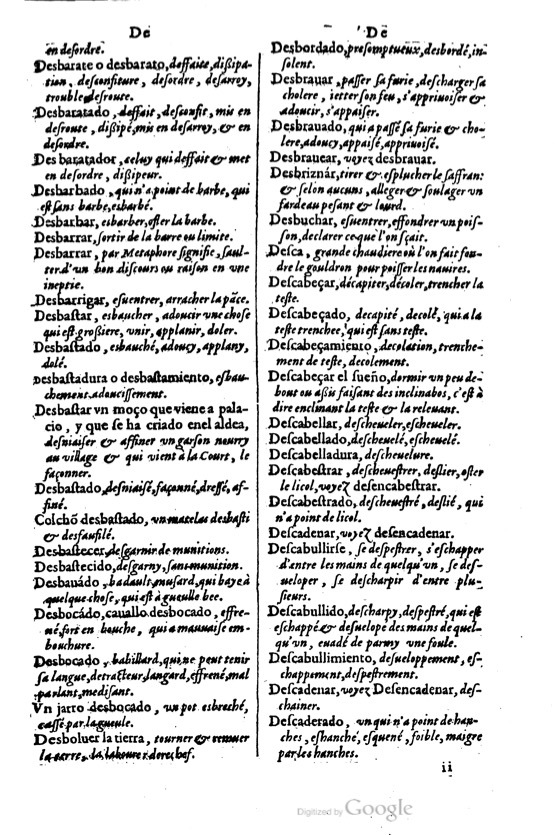 De
en desordre.
Desbarate o desbarato, deffaite, dißipa-
tion, desconfiture, desordre, desarroy,
trouble desroute.
Desbaratado, deffait, desconfit, mis en
desroute, dißipé, mis en desarroy, & en
desordre.
Desbaratador, celuy qui deffait & met
en desordre, dißipeur.
Desbarbado, qui n'a point de barbe, qui
est sans barbe, esbarbé.
Desbarbar, esbarber, oster la barbe.
Desbarrar, sortir de la barre ou limite.
Desbarrar, par Metaphore signifie, saul-
ter d'un bon discours ou raison en vne
ineptie.
Desbarrigar, esuentrer, arracher la pãce.
Desbastar, esbaucher, adoucir vne chose
qui est großiere, vnir, applanir, doler.
Desbastado, esbauché, adoucy, applany,
dolé.
Desbastadura o desbastamiento, esbau-
chement, adoucissement.
Desbastar vn moço que viene a pala-
cio, y que se ha criado enel aldea,
desniaiser & affiner vn garson nourry
au village & qui vient à la Court, le
façonner.
Desbastado, desniaisé, façonné, dressé, af-
finé.
Colchõ desbastado, vn matelas desbasti
& desfaufilé.
Desbastecer, desgarnir de munitions.
Desbastecido, desgarny, sans munition.
Desbauádo, badault, musard, qui baye à
quelque chose, qui est à gueulle bee.
Desbocádo, cauallo desbocado, effre-
né, fort en bouche, qui a mauuaise em-
bouchure.
Desbocado, babillard, qui ne peut tenir
sa langue, detracteur, langard, effrené, mal
parlant, medisant.
Vn jarro desbocado, vn pot esbreché,
cassé par la gueule.
Desboluer la tierra, tourner & remuer
la terre, la labourer derechef.
De
Desbordado, presomptueux, desbordé, in-
solent.
Desbrauar, passer sa furie, descharger sa
cholere, ietter son feu, s'appriuoiser &
adoucir, s'appaiser.
Desbrauado, qui a passé sa furie & cho-
lere, adoucy, appaisé, appriuoisé.
Desbrauear, voyez desbrauar.
Desbriznár, tirer & esplucher le saffran:
& selon aucuns, alleger & soulager vn
fardeau pesant & lourd.
Desbuchar, esuentrer, effondrer vn pois-
son, declarer ce que l'on sçait.
Desca, grande chaudiere où l'on fait fon-
dre le gouldron pour poisser les nauires.
Descabeçar, décapiter, décoler, trencher la
teste.
Descabeçado, decapité, decolé, qui a la
teste trenchee, qui est sans teste.
Descabeçamiento, decolation, trenche-
ment de teste, decolement.
Descabeçar el sueño, dormir vn peu de-
bout ou aßis faisant des inclinabos, c'est à
dire enclinant la teste & la releuant.
Descabellar, descheueler, escheueler.
Descabellado, descheuelé, escheuelé.
Descabelladura, descheuelure.
Descabestrar, descheuestrer, deslier, oster
le licol, voyez desencabestrar.
Descabestrado, descheuestré, deslié, qui
n'a point de licol.
Descadenar, voyez desencadenar.
Descabullirse, se despestrer, s'eschapper
d'entre les mains de quelqu'vn, se des-
ueloper, se descharpir d'entre plu-
sieurs.
Descabullido, descharpy, despestré, qui est
eschappé & desuelopé des mains de quel-
qu'vn, euadé de parmy vne foule.
Descabullimiento, desueloppement, es-
chappement, despestrement.
Descadenar, voyez Desencadenar, des-
chainer.
Descaderado, vn qui n'a point de han-
ches, eshanché, esquené, foible, maigre
par les hanches.
ii
Digitized by Google